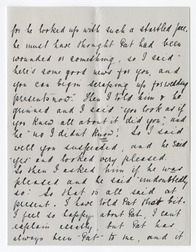 for he looked up with such a startled face,
he must have thought Pat had been
wounded or something, so I said
"here's some good news for you, and
you can begin scraping up for wedding
presents now." Then I told him & he
grinned and I said "you look as if
you knew all about it did you", and
he "no I didn't know". So I said
well you suspected, and he said
yes and looked very pleased.
So then I asked him if he was
pleased and he said "undoubtedly
so". So that is all said at
present. I have told Pat that bit.
I feel so happy about Pat, I can't
explain exactly, but Pat has
always been "Pat" to me, and it